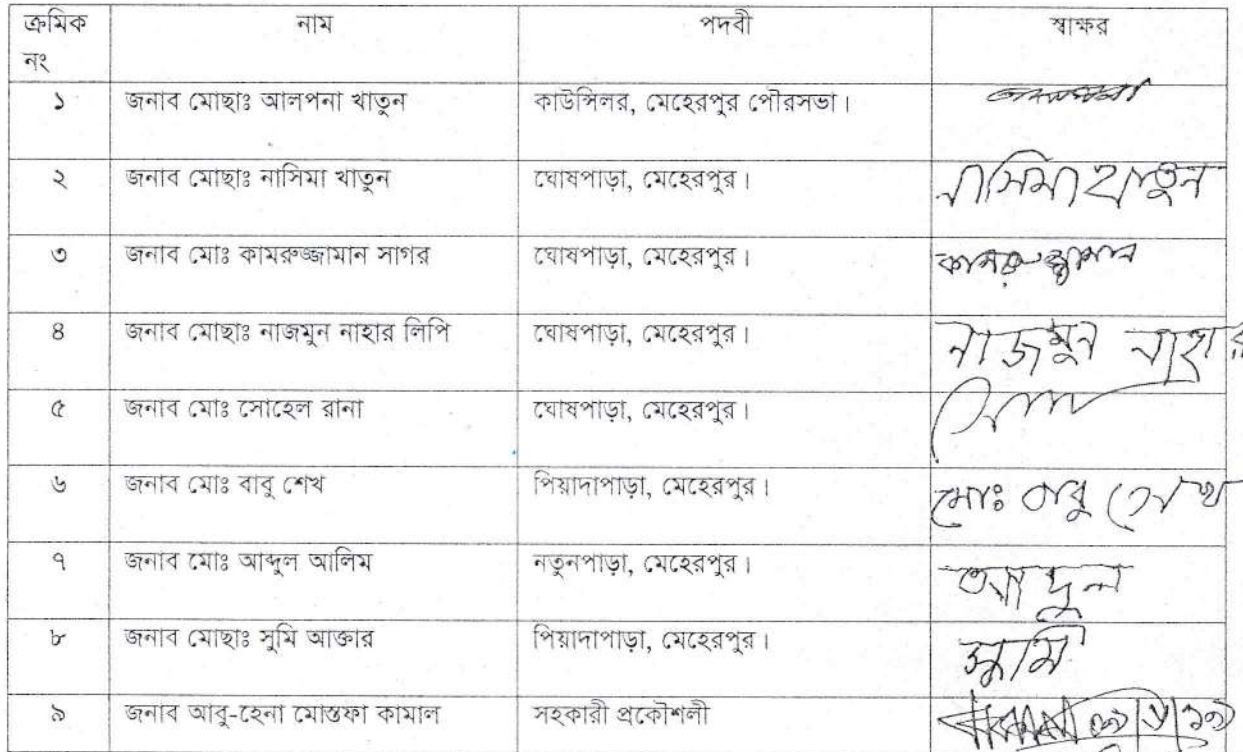 ক্রমিক নং নাম পদবী স্বাক্ষর
১ জনাব মোছাঃ আলপনা খাতুন কাউন্সিলর, মেহেরপুর পৌরসভা।
২ জনাব মোছাঃ নাসিমা খাতুন ঘোষপাড়া, মেহেরপুর। নাসিমা খাতুন
৩ জনাব মোঃ কামরুজ্জামান সাগর ঘোষপাড়া, মেহেরপুর। কামরুজ্জামান
৪ জনাব মোছাঃ নাজমুন নাহার লিপি ঘোষপাড়া, মেহেরপুর। নাজমুন নাহার
৫ জনাব মোঃ সোহেল রানা ঘোষপাড়া, মেহেরপুর।
৬ জনাব মোঃ বাবু শেখ পিয়াদাপাড়া, মেহেরপুর। মোঃ বাবু শেখ
৭ জনাব মোঃ আব্দুল আলিম নতুনপাড়া, মেহেরপুর।
৮ জনাব মোছাঃ সুমি আক্তার পিয়াদাপাড়া, মেহেরপুর। সুমি
৯ জনাব আবু-হেনা মোস্তফা কামাল সহকারী প্রকৌশলী